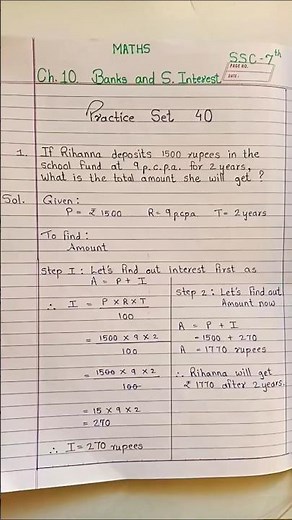 MATHS
SSC-7th
PAGE NO.
DATE:
Ch.10 Banks and S. Interest
Practice Set 40
1. If Rihanna deposits 1500 rupees in the
school fund at 9 p.c.p.a. for 2 years,
what is the total amount she will get ?
Sol. Given :
P = ₹ 1500 R = 9 pcpa T = 2 years
To find :
Amount
Step I : Let's find out interest first as
A = P + I
∴ I = P x R x T
100
= 1500 x 9 x 2
100
= 1500 x 9 x 2
100
= 15 x 9 x 2
= 270
∴ I = 270 rupees
Step 2 : Let's find out
Amount now
A = P + I
= 1500 + 270
A = 1770 rupees
∴ Rihanna will get
₹ 1770 after 2 years.